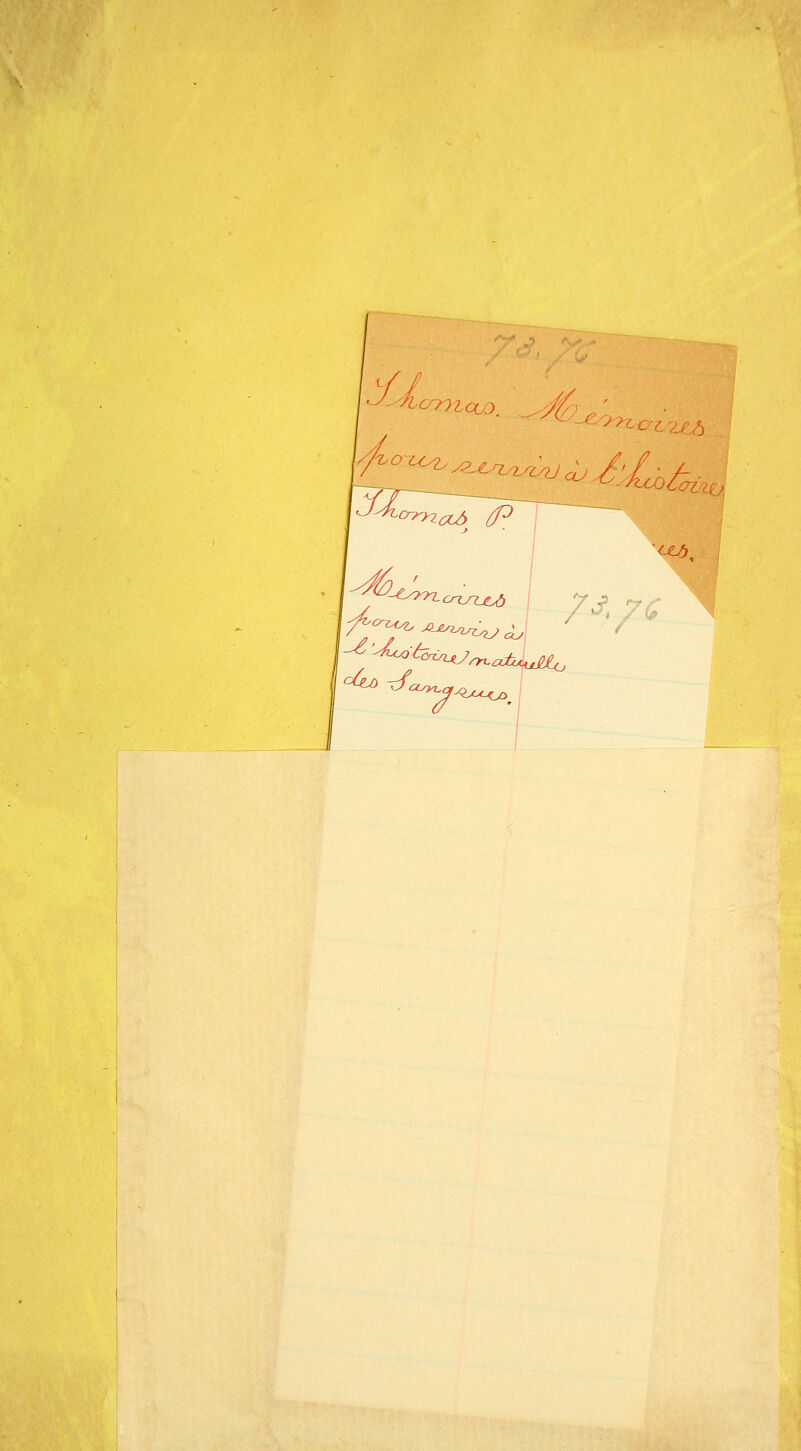 73.76
Thomas. Mémoires
pour servir à l'histoire
ues.
Thomas, P.
Mémoires 73,76
pour servir à
l'histoire naturelle
des Sangsues.